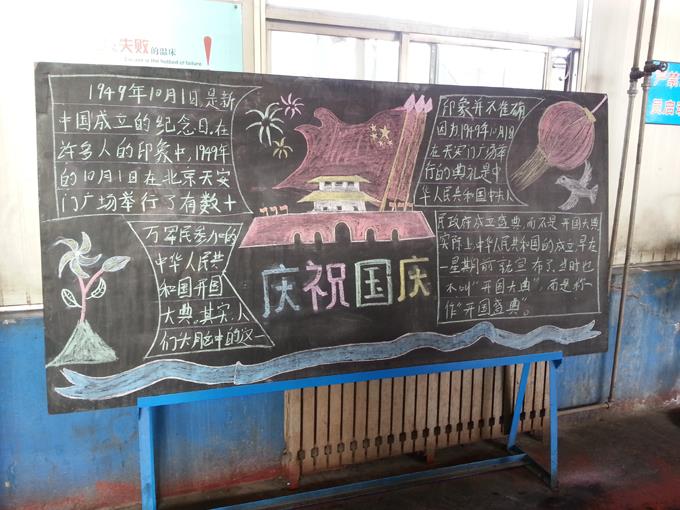 失败的温床
1949年10月1日是新
中国成立的纪念日。在
许多人的印象中,1949年
的10月1日在北京天安
门广场举行了有数十
万军民参加的
中华人民共
和国开国
大典。其实,人
们大脑中的这一
印象并不准确
因为1949年10月1日
在天安门广场举
行的典礼是中
华人民共和国中央人
民政府成立盛典,而不是开国大典
实际上,中华人民共和国的成立早在
一星期前就宣布了。当时也
不叫“开国大典”,而是称
作“开国盛典”。
庆祝国庆